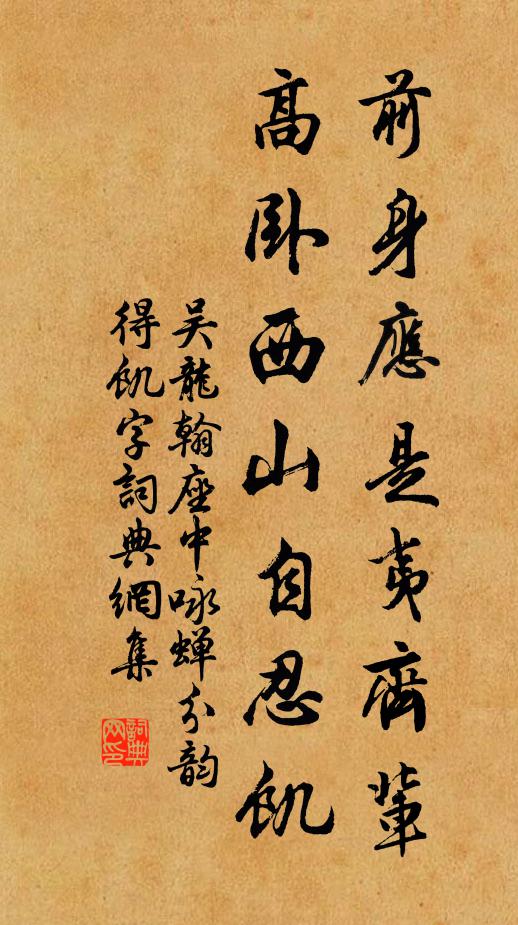 前身應是夷齊輩
高卧西山自忍飢
吴龍翰座中咏蝉分韵
得飢字詞典網集
詞典网印